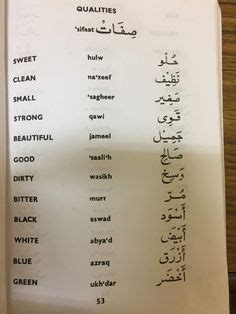 QUALITIES
'sifaat صِفَاتْ
SWEET hulw حُلْو
CLEAN na'zeef نَظِيْف
SMALL 'sagheer صَغِيْر
STRONG qawi قَوِى
BEAUTIFUL jameel جَمِيْل
GOOD 'saali'h صَالِح
DIRTY wasikh وَسِخ
BITTER murr مُرّ
BLACK aswad أَسْوَد
WHITE abya'd أَبْيَض
BLUE azraq أَزْرَق
GREEN ukh'dar أَخْضَر
53